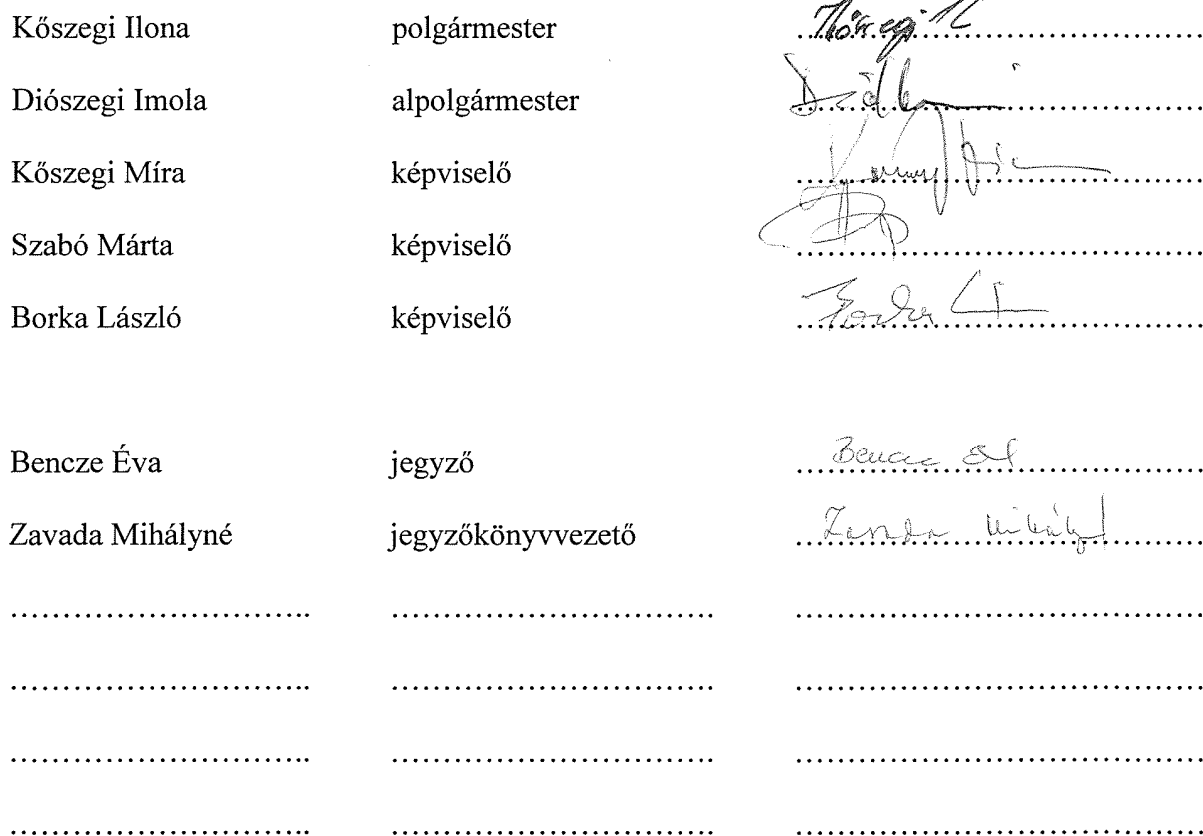 Kőszegi Ilona polgármester Kőszegi I
Diószegi Imola alpolgármester
Kőszegi Míra képviselő
Szabó Márta képviselő
Borka László képviselő Borka L
Bencze Éva jegyző Bencze Éva
Zavada Mihályné jegyzőkönyvvezető Zavada Mihályné
............................ .............................. ......................................
............................ .............................. ......................................
............................ .............................. ......................................
............................ .............................. ......................................